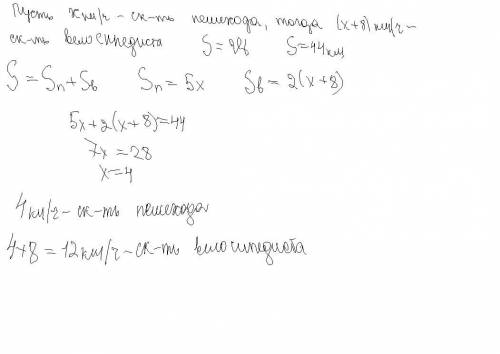 Пусть x км/ч – ск-ть пешехода, тогда (x+8) км/ч –
ск-ть велосипедиста S = S = 44 км
S = Sп + Sв Sп = 5x Sв = 2(x+8)
5x + 2(x+8) = 44
7x = 28
x = 4
4 км/ч – ск-ть пешехода
4+8 = 12 км/ч – ск-ть велосипедиста